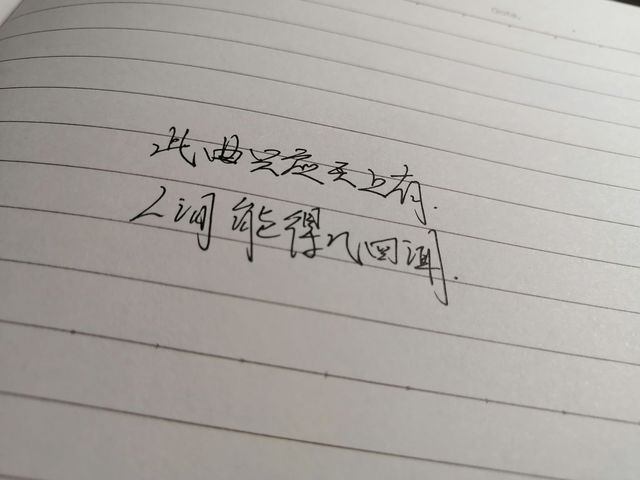 Date.
此曲只应天上有.
人间能得几回闻.